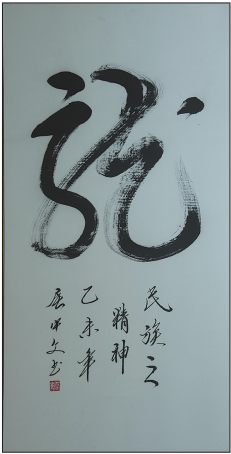 龍
民族之
精神
乙未年
中文书